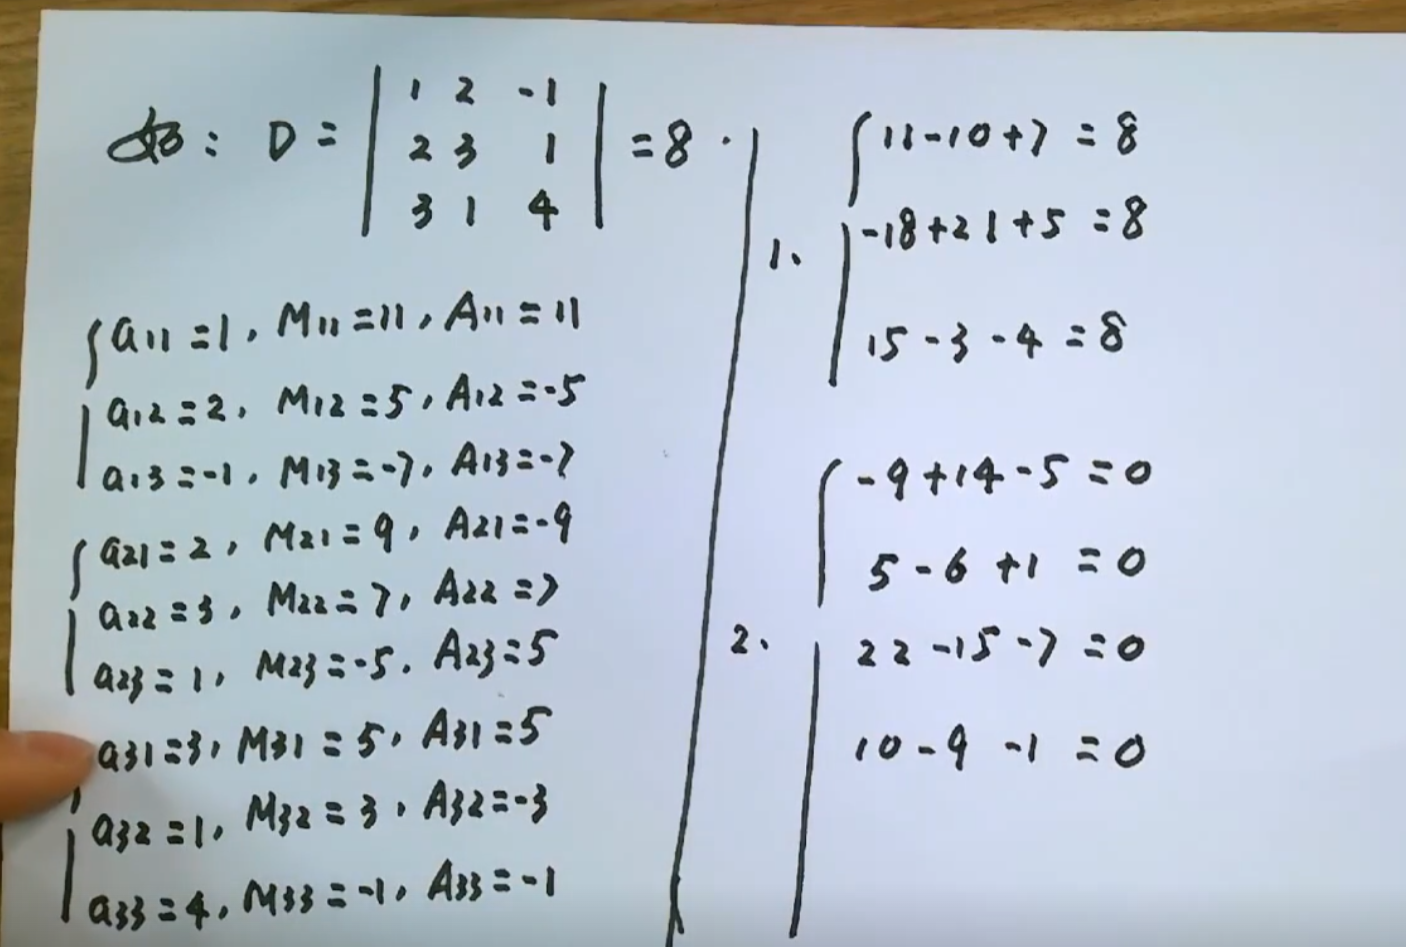 如: D = | 1 2 -1 | = 8.
| 2 3 1 |
| 3 1 4 |
a11 = 1, M11 = 11, A11 = 11
a12 = 2, M12 = 5, A12 = -5
a13 = -1, M13 = -7, A13 = -7
a21 = 2, M21 = 9, A21 = -9
a22 = 3, M22 = 7, A22 = 7
a23 = 1, M23 = -5, A23 = 5
a31 = 3, M31 = 5, A31 = 5
a32 = 1, M32 = 3, A32 = -3
a33 = 4, M33 = -1, A33 = -1
1、
11 - 10 + 7 = 8
-18 + 21 + 5 = 8
15 - 3 - 4 = 8
2、
-9 + 14 - 5 = 0
5 - 6 + 1 = 0
22 - 15 - 7 = 0
10 - 9 - 1 = 0